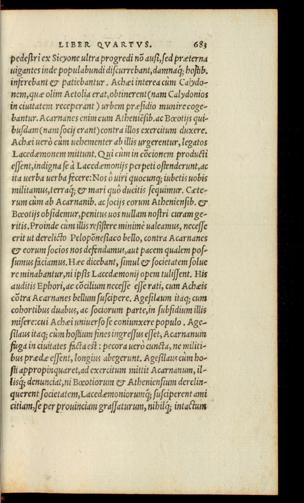 LIBER QVARTVS. 683
pedestri ex Sicyone ultra progredi nō ausi, sed præterna
uigantes inde populabundi discurrebant, damnaq́; hostib.
inferebant & patiebantur. Achæi interea cùm Calydo-
nem, quæ olim Aetolia erat, obtinerent (nam Calydonios
in ciuitatem receperant) urbem præsidio munire coge-
bantur. Acarnanes enim cum Atheniēsib. ac Bœotijs qui-
busdam (nam socij erant) contra illos exercitum duxere.
Achæi uerò cùm uehementer ab illis urgerentur, legatos
Lacedæmonem mittunt. Qui cùm in cōcionem producti
essent, indigna se à Lacedæmonijs perpeti ostenderunt, ac
ita uerba uerba fecere: Nos ô uiri quocunq; iubetis uobis
militamus, terraq́; & mari quò ducitis sequimur. Cæte-
rum cùm ab Acarnanib. ac socijs eorum Atheniensib. &
Bœotijs obsidemur, penitus uos nullam nostri curam ge-
ritis. Proinde cùm illis resistere minimè ualeamus, necesse
erit ut derelicto Peloponēsiaco bello, contra Acarnanes
& eorum socios nos defendamus, aut pacem qualem pos-
sumus faciamus. Hæc dicebant, simul & societatem solue
re minabantur, ni ipsis Lacedæmonij opem tulissent. His
auditis Ephori, ac cōcilium necesse esse rati, cum Achæis
cōtra Acarnanes bellum suscipere. Agesilaum itaq; cum
cohortibus duabus, ac sociorum parte, in subsidium illis
misere: cui Achæi uniuerso se coniunxere populo. Age-
silaus itaq; cùm hostium fines ingressus esset, Acarnanum
fuga in ciuitates facta est: pecora uerò cuncta, ne militi-
bus prædæ essent, longius abegerunt. Agesilaus cùm ho-
sti appropinquaret, ad exercitum mittit Acarnanum, il-
lisq́; denunciat, ni Bœotiorum & Atheniensium derelin-
querent societatem, Lacedæmoniorumq́; susciperent ami
citiam, se per prouinciam grassaturum, nihilq́; intactum